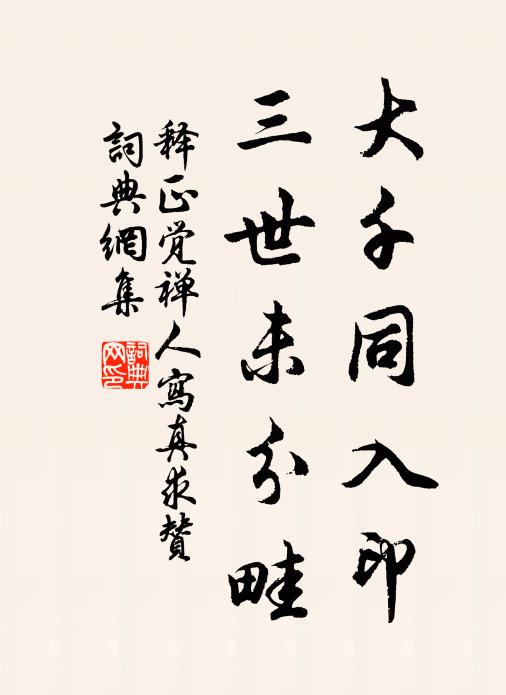 大千同入印
三世未分畦
释正觉禅人寫真求贊
詞典網集
詞典網印